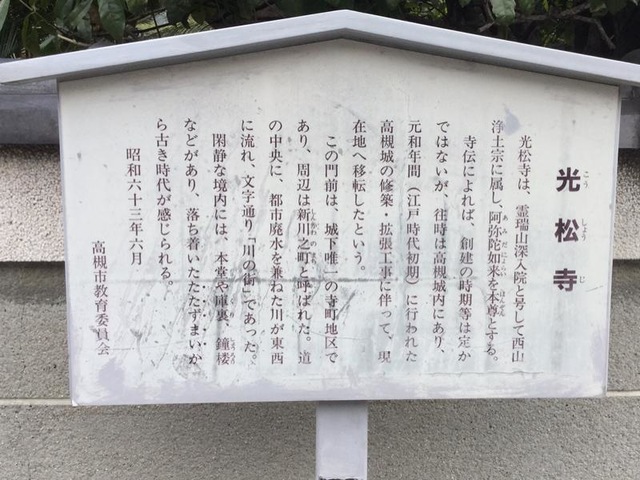 光松寺
こうしょうじ
光松寺は、霊瑞山深入院と号して西山
浄土宗に属し、阿弥陀如来を本尊とする。
寺伝によれば、創建の時期等は定か
ではないが、往時は高槻城内にあり、
元和年間（江戸時代初期）に行われた
高槻城の修築・拡張工事に伴って、現
在地へ移転したという。
この門前は、城下唯一の寺町地区で
あり、周辺は新川之町と呼ばれた。道
の中央に、都市廃水を兼ねた川が東西
に流れ、文字通り「川の街」であった。
閑静な境内には、本堂や庫裏、鐘楼
などがあり、落ち着いたたたずまいか
ら古き時代が感じられる。
昭和六十三年六月
高槻市教育委員会